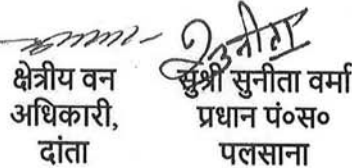 सुनीता
क्षेत्रीय वन
अधिकारी,
दांता
सुश्री सुनीता वर्मा
प्रधान पं०स०
पलसाना